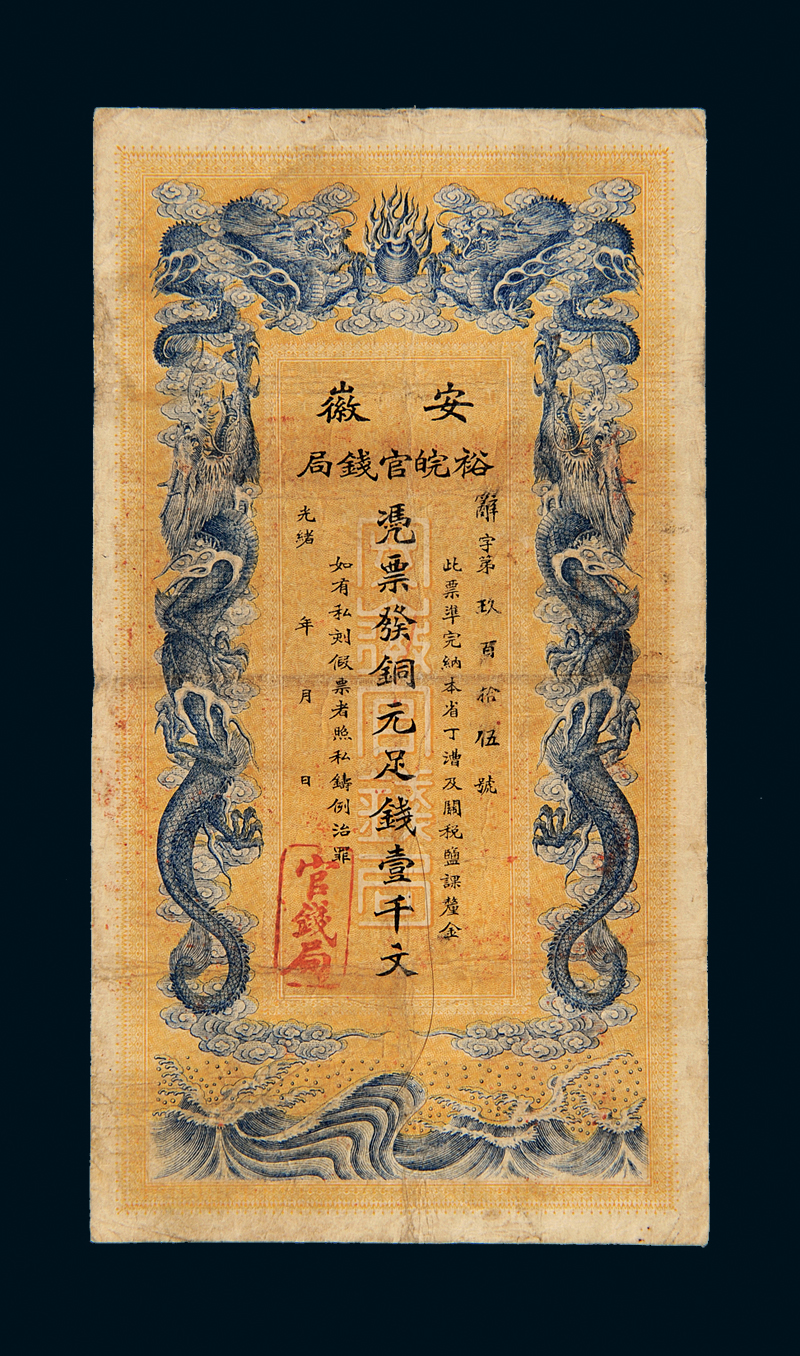 安徽
裕皖官錢局
辭字第玖百拾伍號
此票準完納本省丁漕及關稅鹽課釐金
憑票發銅元足錢壹千文
如有私刻假票者照私鑄例治罪
光緒 年 月 日
官錢局